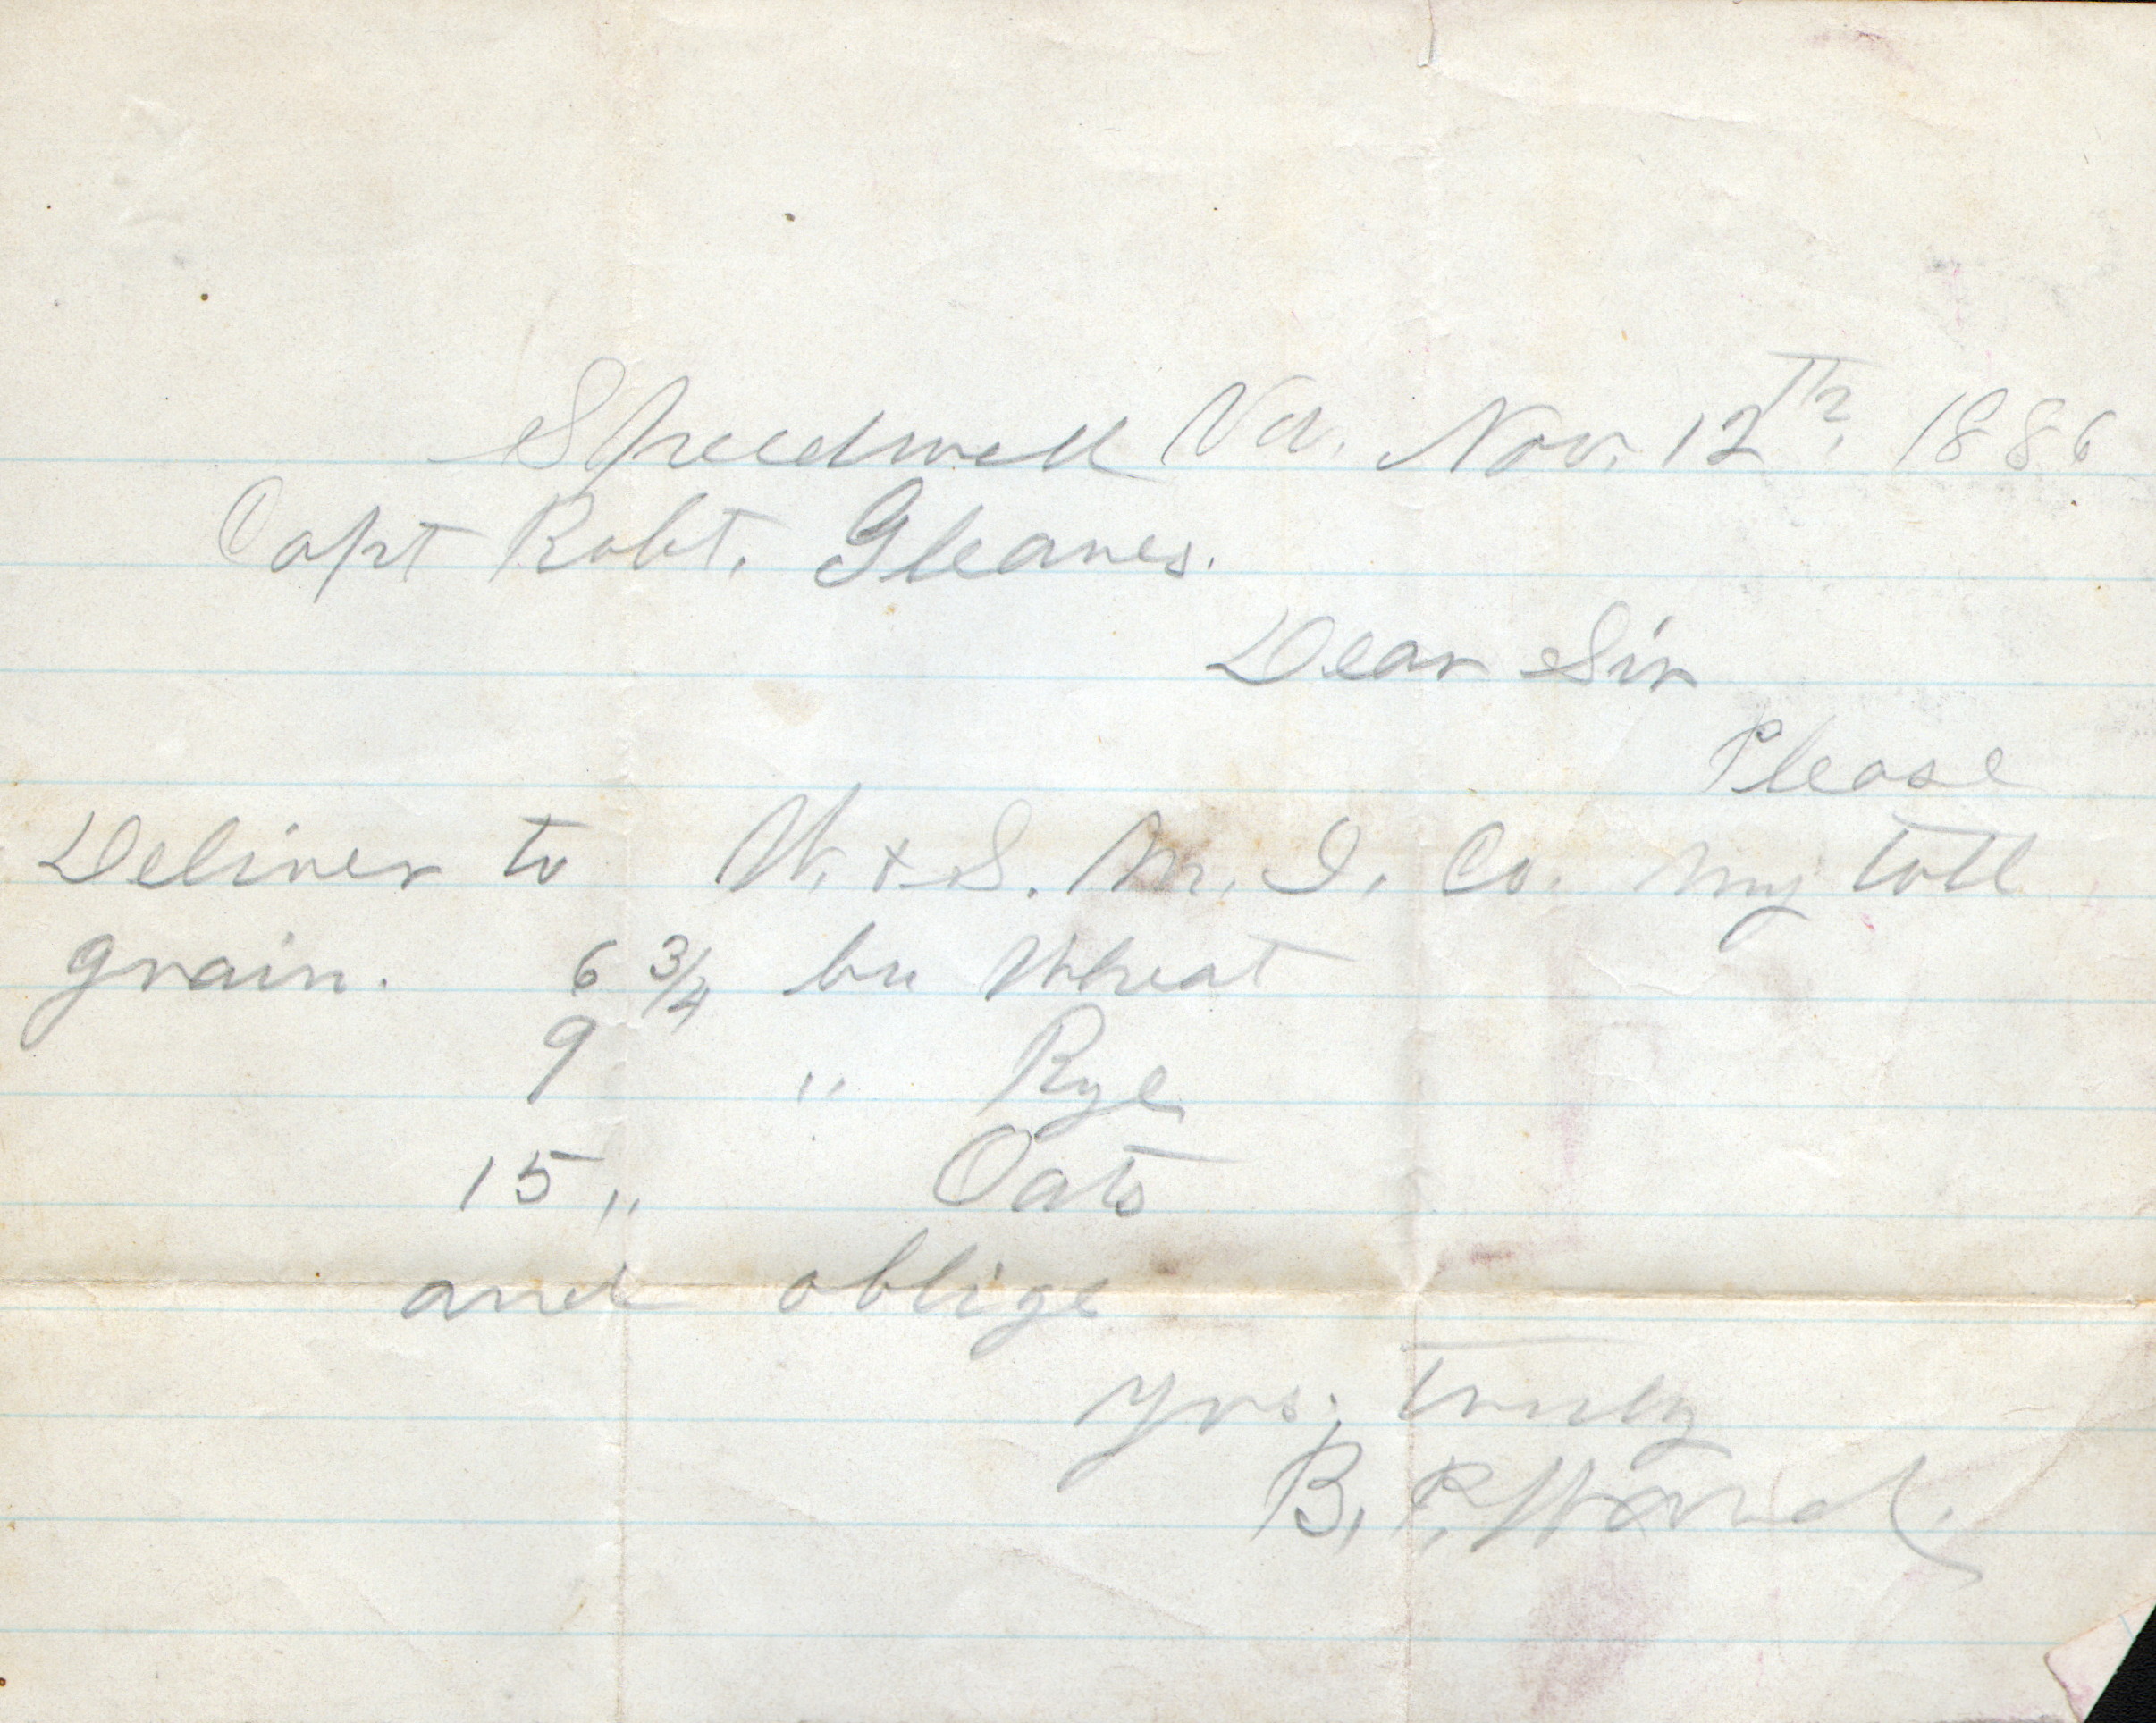 Speedwell Va. Nov. 12th, 1886
Capt Robt. Gleaves.
Dear Sir
Please
Deliver to W. & S. M. I. Co. my toll
grain. 6 3/4 bu Wheat
9 " Rye
15 " Oats
and oblige
Yrs. truly
B. P. Ward.